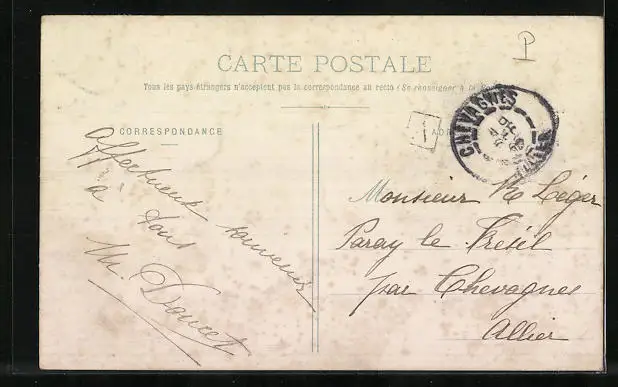 P
CARTE POSTALE
Tous les pays étrangers n'acceptent pas la correspondance au recto (Se renseigner à la
CORRESPONDANCE
CHEVAGNES
ALLIER
Affectueux souvenir
à tous
M. Doucet
Monsieur Léger
Paray le Frésil
par Chevagnes
Allier